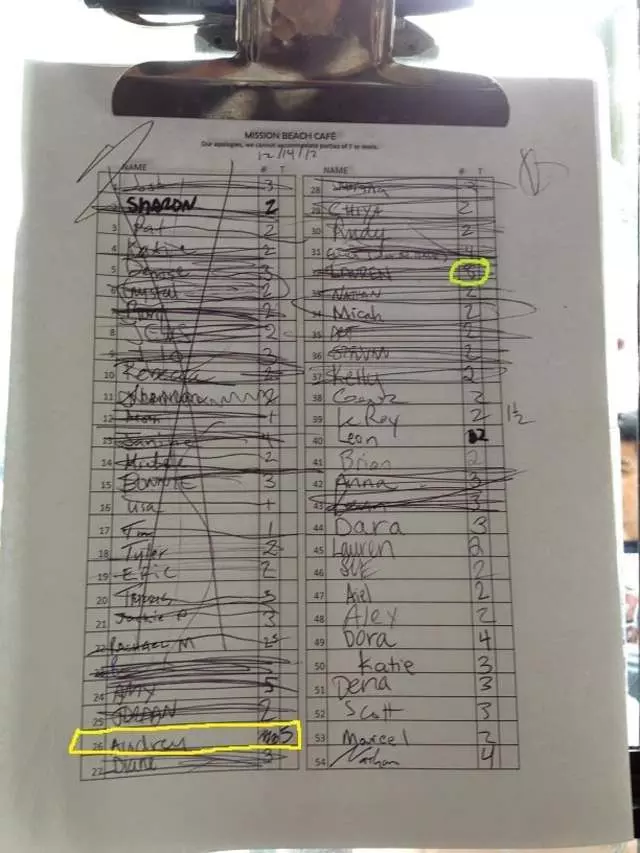 MISSION BEACH CAFÉ
Our apologies, we cannot accommodate parties of 7 or more.
12/14/12
NAME # T
1 Josh 3
2 SHARON 2
3 Pat 2
4 Katie 2
5 Denise 3
6 Crystal 2
7 2
8 JESS 2
9 3
10 Rebecca 2
11 2
12 1
13 Janine 4
14 2
15 BONNIE 3
16 Lisa 1
17 Tim 1
18 Tyler 2
19 ERIC 2
20 3
21 Jackie P 3
22 RACHAEL M
23
24 AMY 5
25 JORDAN 2
26 Audrey 5
27 Diane 3
NAME # T
28 3
29 CHIYA 2
30 Andy 2
31 4
LAUREN 3
33 NATHAN 2
34 Micah 2
35 2
36 2
37 Kelly 2
38 2
39 K Rey 2 1½
40 Leon 2
41 Brian 2
42 Anna 3
43 3
44 Dara 3
45 Lauren 2
46 SUE 2
47 Ariel 2
48 Alex 2
49 Dora 4
50 Katie 3
51 Dena 3
52 Scott 3
53 Marcel 2
54 Nathan 4